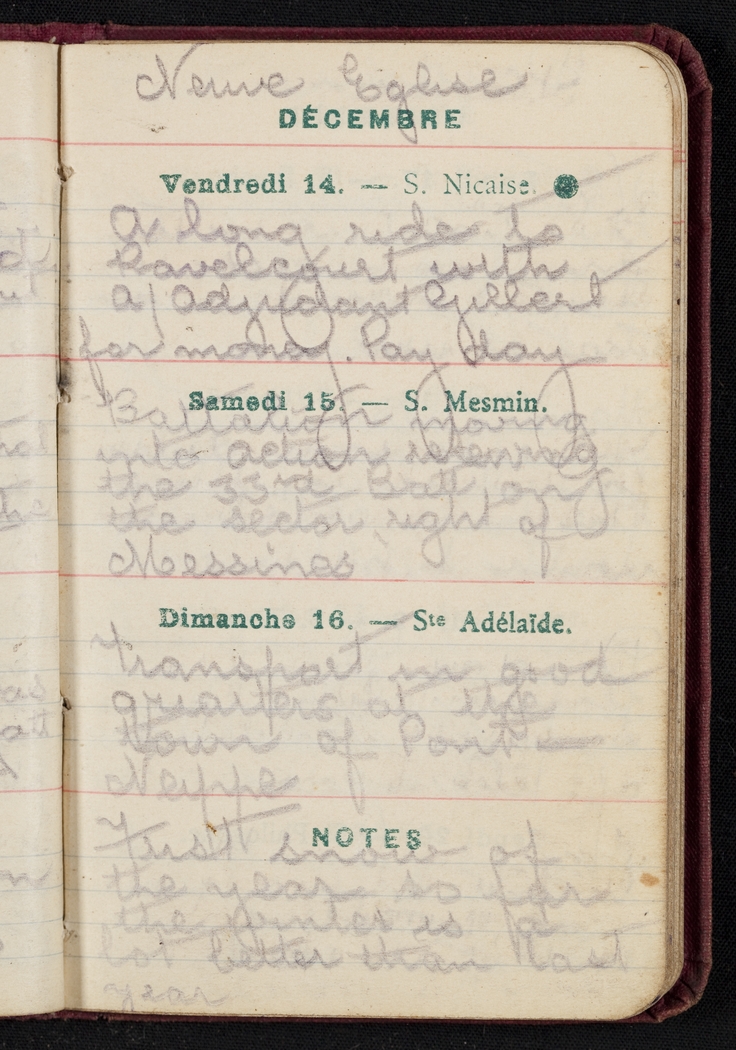 Neuve Eglise
DÉCEMBRE
Vendredi 14. — S. Nicaise.
A long ride to
Ravelcourt with
A/ Adjudant Gillert
for money. Pay day
Samedi 15. — S. Mesmin.
Battalion moving
into action relieving
the 33rd Batt, on
the sector right of
Messines
Dimanche 16. — Ste Adélaïde.
Transport in good
quarters at the
town of Pont —
Neippe
NOTES
First snow of
the year so far
the winter is a
lot better than last
year